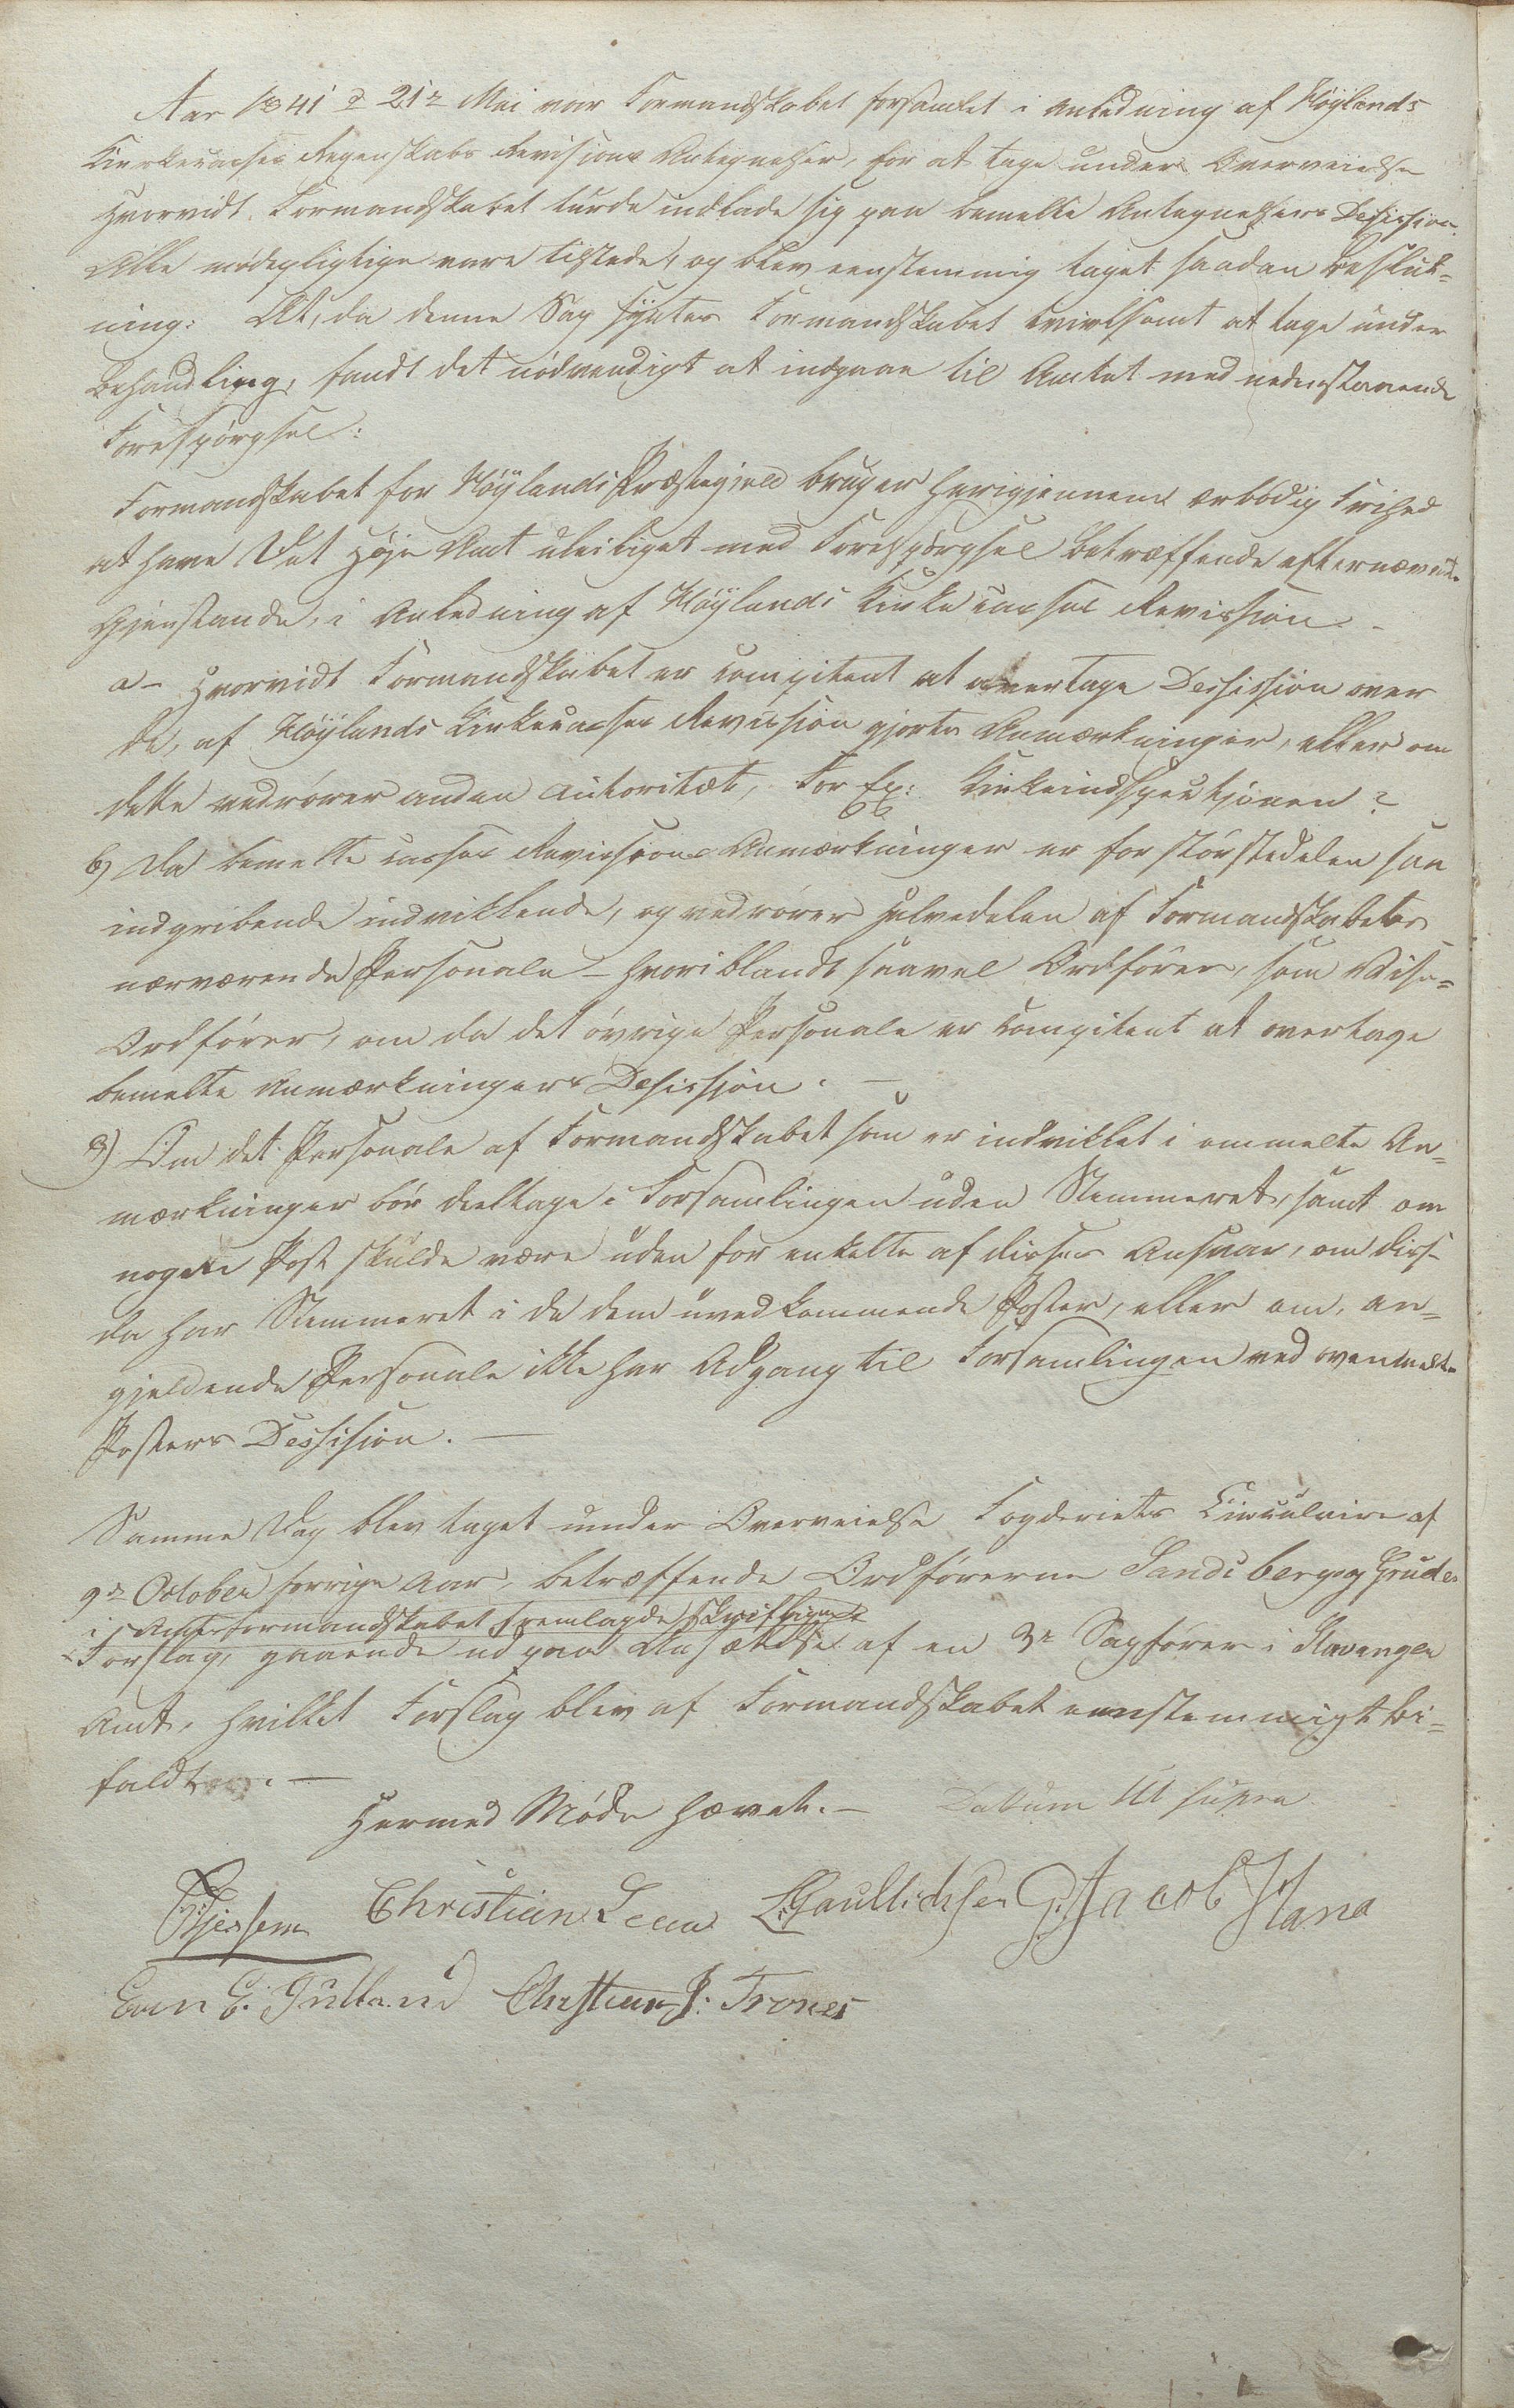 Aar 1841 d 21de Mai var Formandskabet forsamlet i Anledning af Höÿlands
Kirkecasses Regenskabs Revisions Antegnelser, for at tage under Overveielse
hvorvidt Formandskabet turde indlade sig paa bemelte Antegnelsers Desission.
Alle mödepligtige vare tilstede, og blev eenstemmig taget saadan Beslut-
ning: At, da denne Sag syntes Formandskabet tvivlsomt at tage under
Behandling, fandt det nödvendigt at indgaae til Amtet med nedenstaaende
Forespörgsel:
Formandskabet for Höÿlands Præstegield bruger herigjennem ærbödig Frihed
at have Det Höje Amt uleiliget med Forespörgsel betræffende efternævnte
Gjenstande, i Anledning af Höÿlands Kirkecasses Revission -
a - Hvorvidt Formandskabet er compitent at overtage Dessission over
de, af Höÿlands Kirkecasses Revission gjorte Anmærkninger, eller om
dette vedrörer anden Autoritæt, For Ex: Kirkeindspektjonen?
b) Da bemelte Casses Revissions Anmærkninger er for störstedelen saa
indgribende indviklende, og vedrörer halvedelen af Formandskabets
nærværende Personale - hvoriblandt saavel Ordförer, som Vise-
Ordförer, om da det övrige Personale er compitent at overtage
bemelte Anmærkningers Desission. -
3) Om det Personale af Formandskabet som er indviklet i ommelte An-
mærkninger bör deeltage i Forsamlingen uden Stemmeret, samt om
nogen Post skulde være uden for enkelte af disses Ansvar, om diss-
da har Stemmeret i de dem uvedkommende Poster, eller om, an-
gjeldende Personale ikke har Adgang til Forsamlingen ved ovenmelte
Posters Dessision. -
Samme Dag blev taget under Overveielse Fogderiets Circulaire af
9de October forrige Aar, betræffende Ordförerne Sandsberg og Grude
i Amtsformandskabet fremlagde skriftlige
Forslag, gaaende ud paa Ansættelse af en 3de Sagförer i Stavanger
Amt, hvilket Forslag blev af Formandskabet eenstemmigt bi-
faldt. -
Hermed Möde hævet. - Datum Ut supra
Christian Lea G. Jacob Hana
E. Christian J: Trones